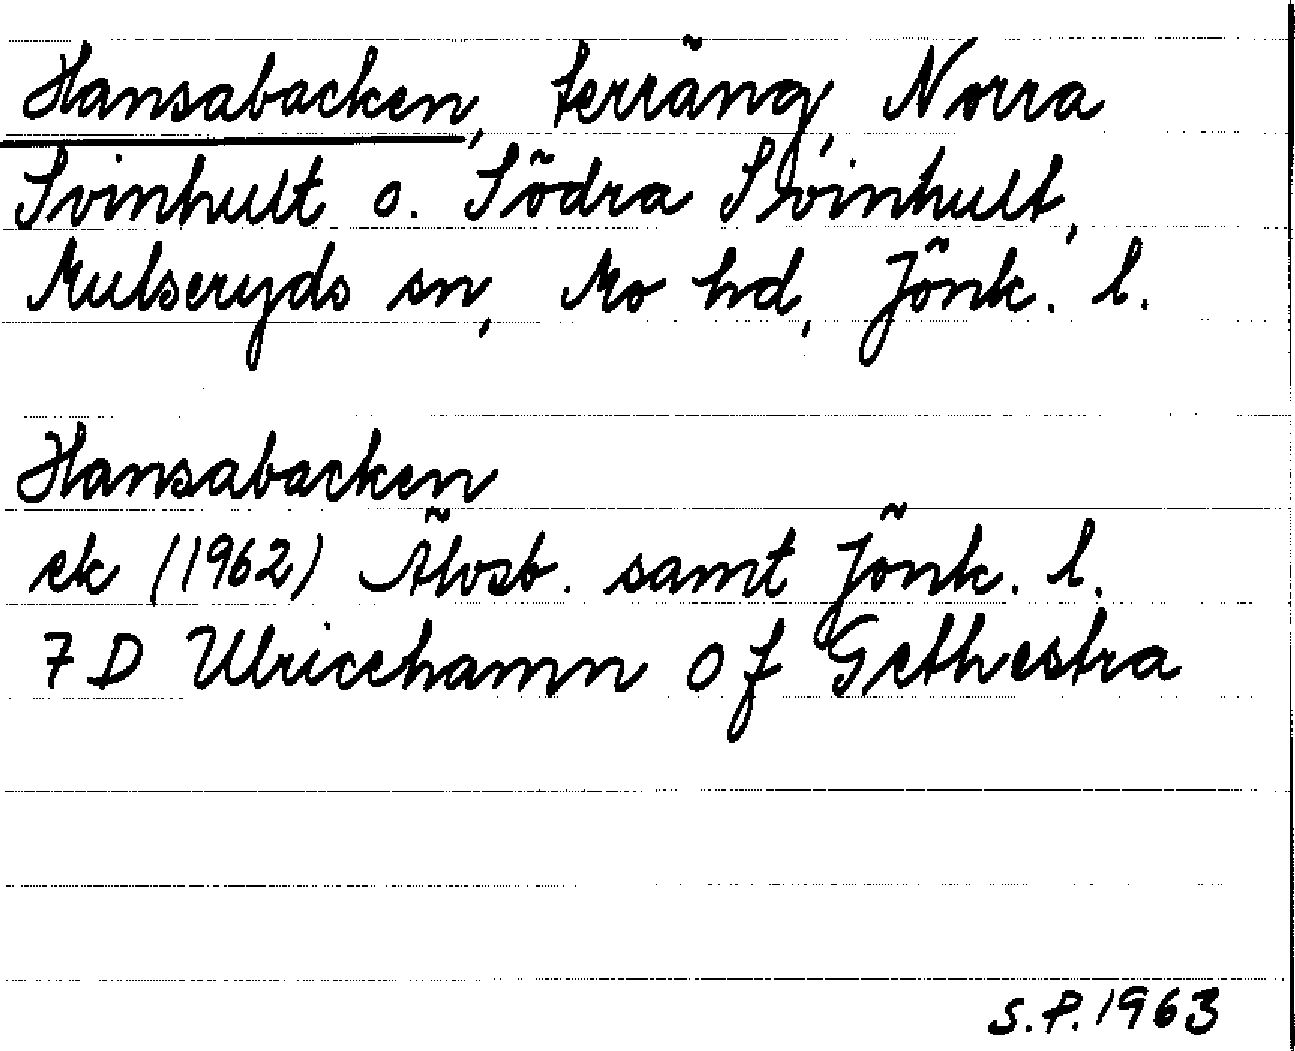 Hansabacken, terräng, Norra
Svinhult o. Södra Svinhult,
Mulseryds sn, Mo hd, Jönk. l.
Hansabacken
ek (1962) Älvsb. samt Jönk. l.
7 D Ulricehamn 0 f Grethestra
S.P. 1963